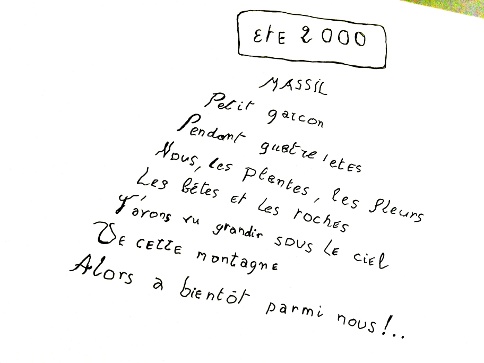 EtE 2000
MASSIL
Petit garcon
Pendant quatre etes
Nous, les plantes, les fleurs
Les bêtes et les roches
T'avons vu grandir sous le ciel
De cette montagne
Alors a bientôt parmi nous!..